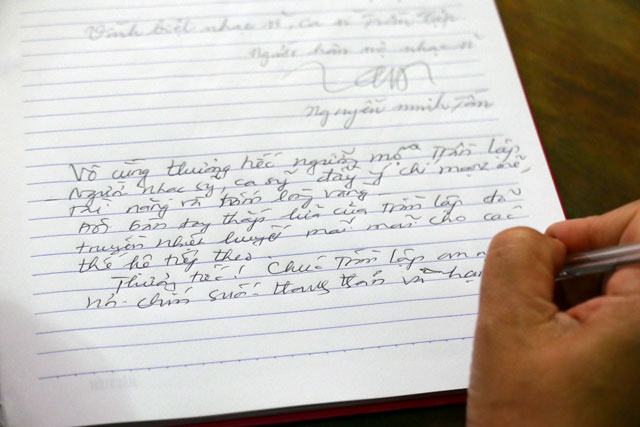 Vĩnh biệt nhạc sĩ, ca sĩ Trần Lập
Người hâm mộ nhạc sĩ
Nguyễn Minh Tâm
Vô cùng thương tiếc người Trần Lập
Người nhạc sỹ, ca sỹ đầy ý chí mạnh mẽ,
Tài năng và tấm lòng vàng.
Đôi bàn tay thắp lửa của Trần Lập đã
truyền nhiệt huyết mãi mãi cho các
thế hệ tiếp theo.
Thương tiếc! Chúc Trần Lập an